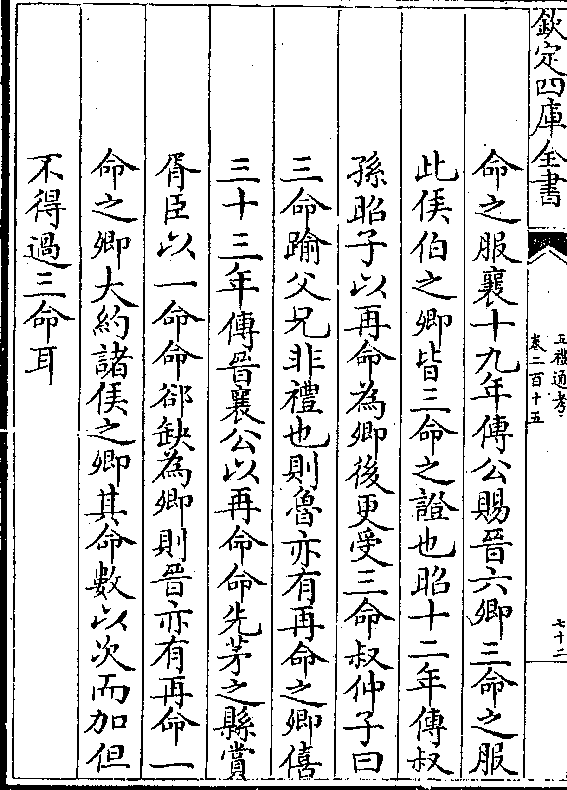 欽定四庫全書
五禮通考
卷二百十五
七十二
命之服襄十九年傳公賜晉六卿三命之服
此侯伯之卿皆三命之證也昭十二年傳叔
孫昭子以再命為卿後更受三命叔仲子曰
三命踰父兄非禮也則魯亦有再命之卿僖
三十三年傳晉襄公以再命命先茅之縣賞
胥臣以一命命郤缺為卿則晉亦有再命一
命之卿大約諸侯之卿其命數以次而加但
不得過三命耳